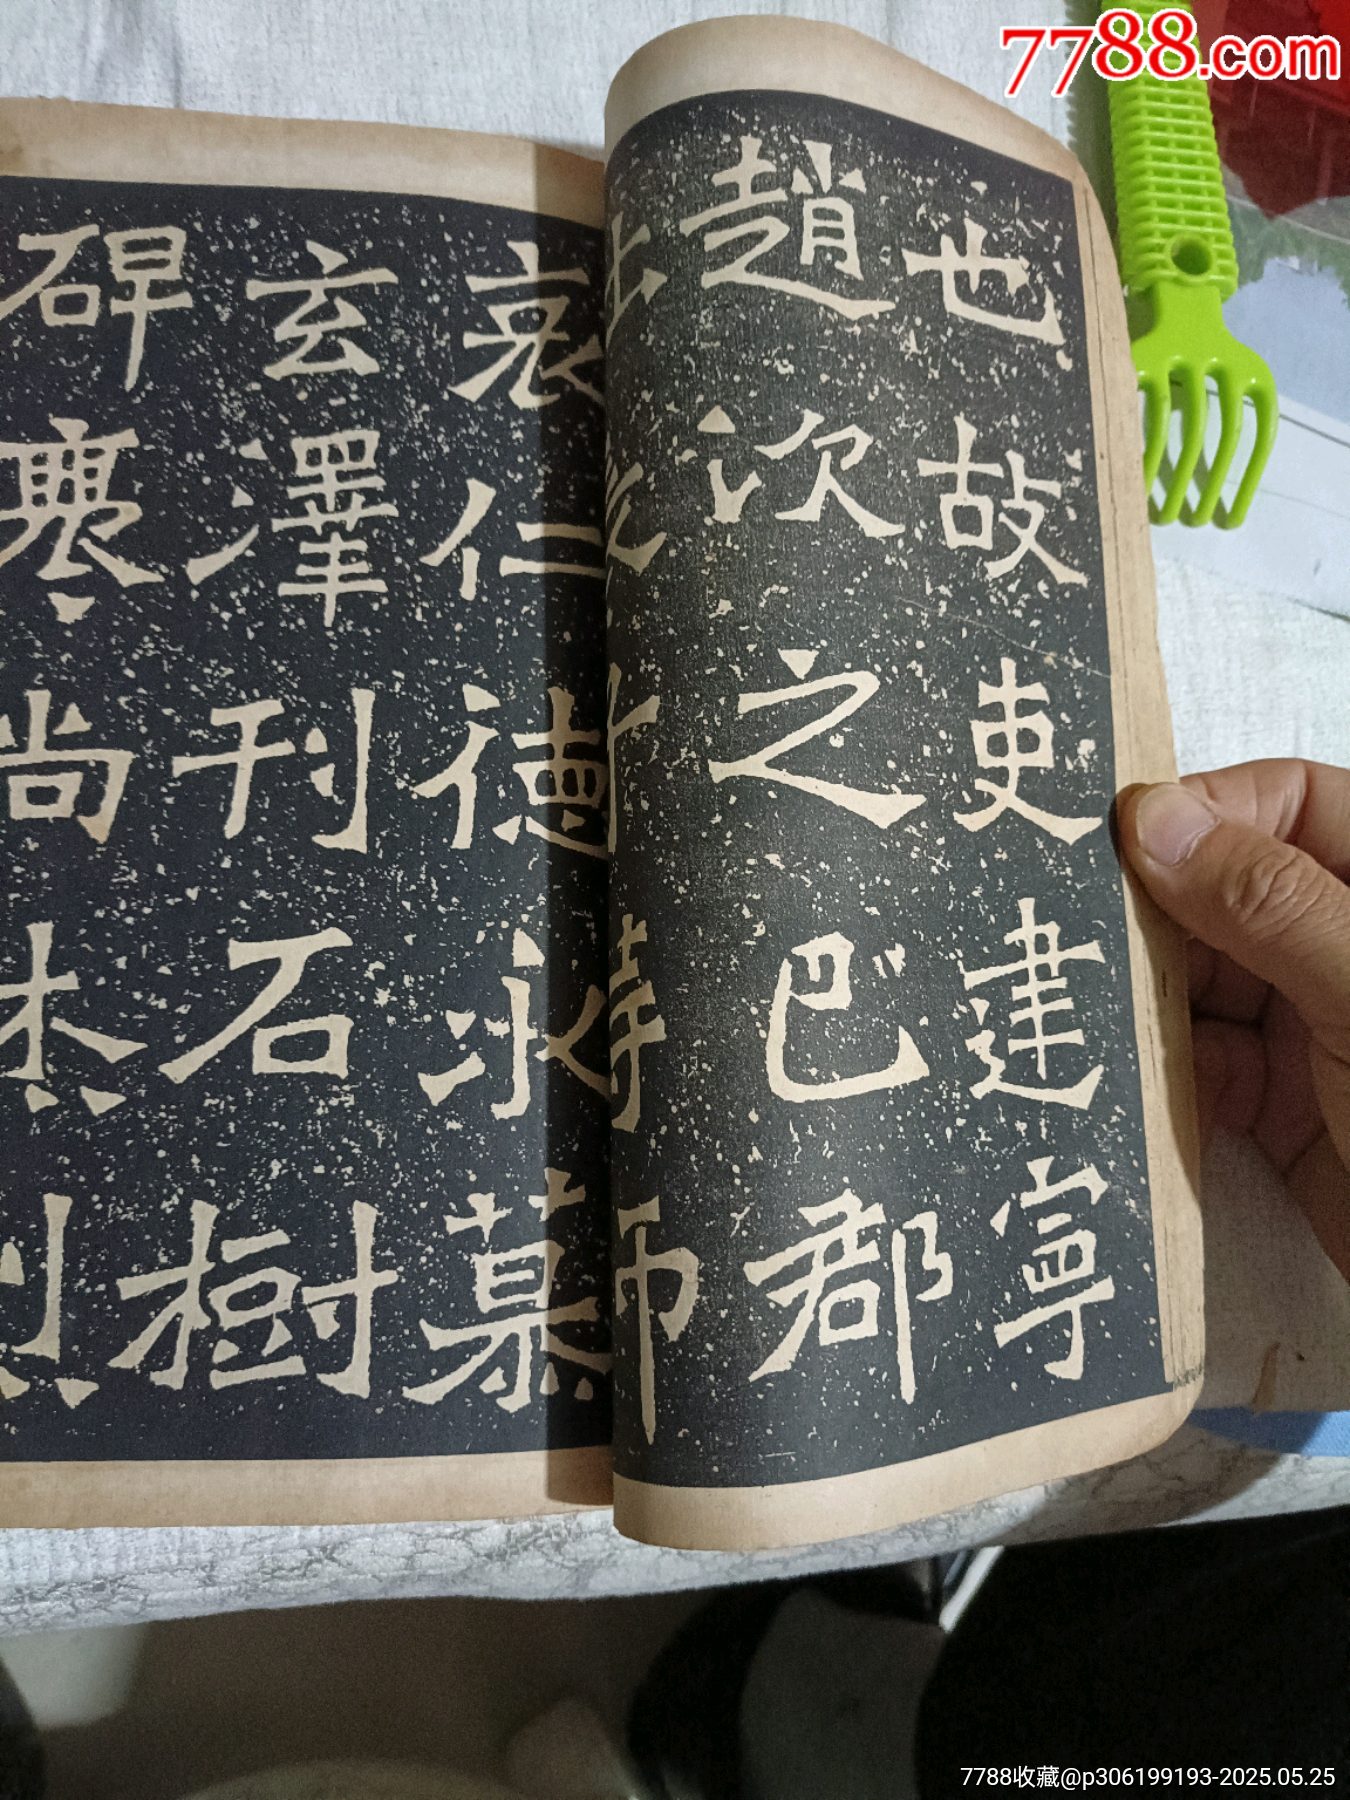 也故吏建寧
趙次之巴郡
哀仁德永慕
玄澤刊石樹
碑褒尚
7788.com
7788收藏@p306199193-2025.05.25